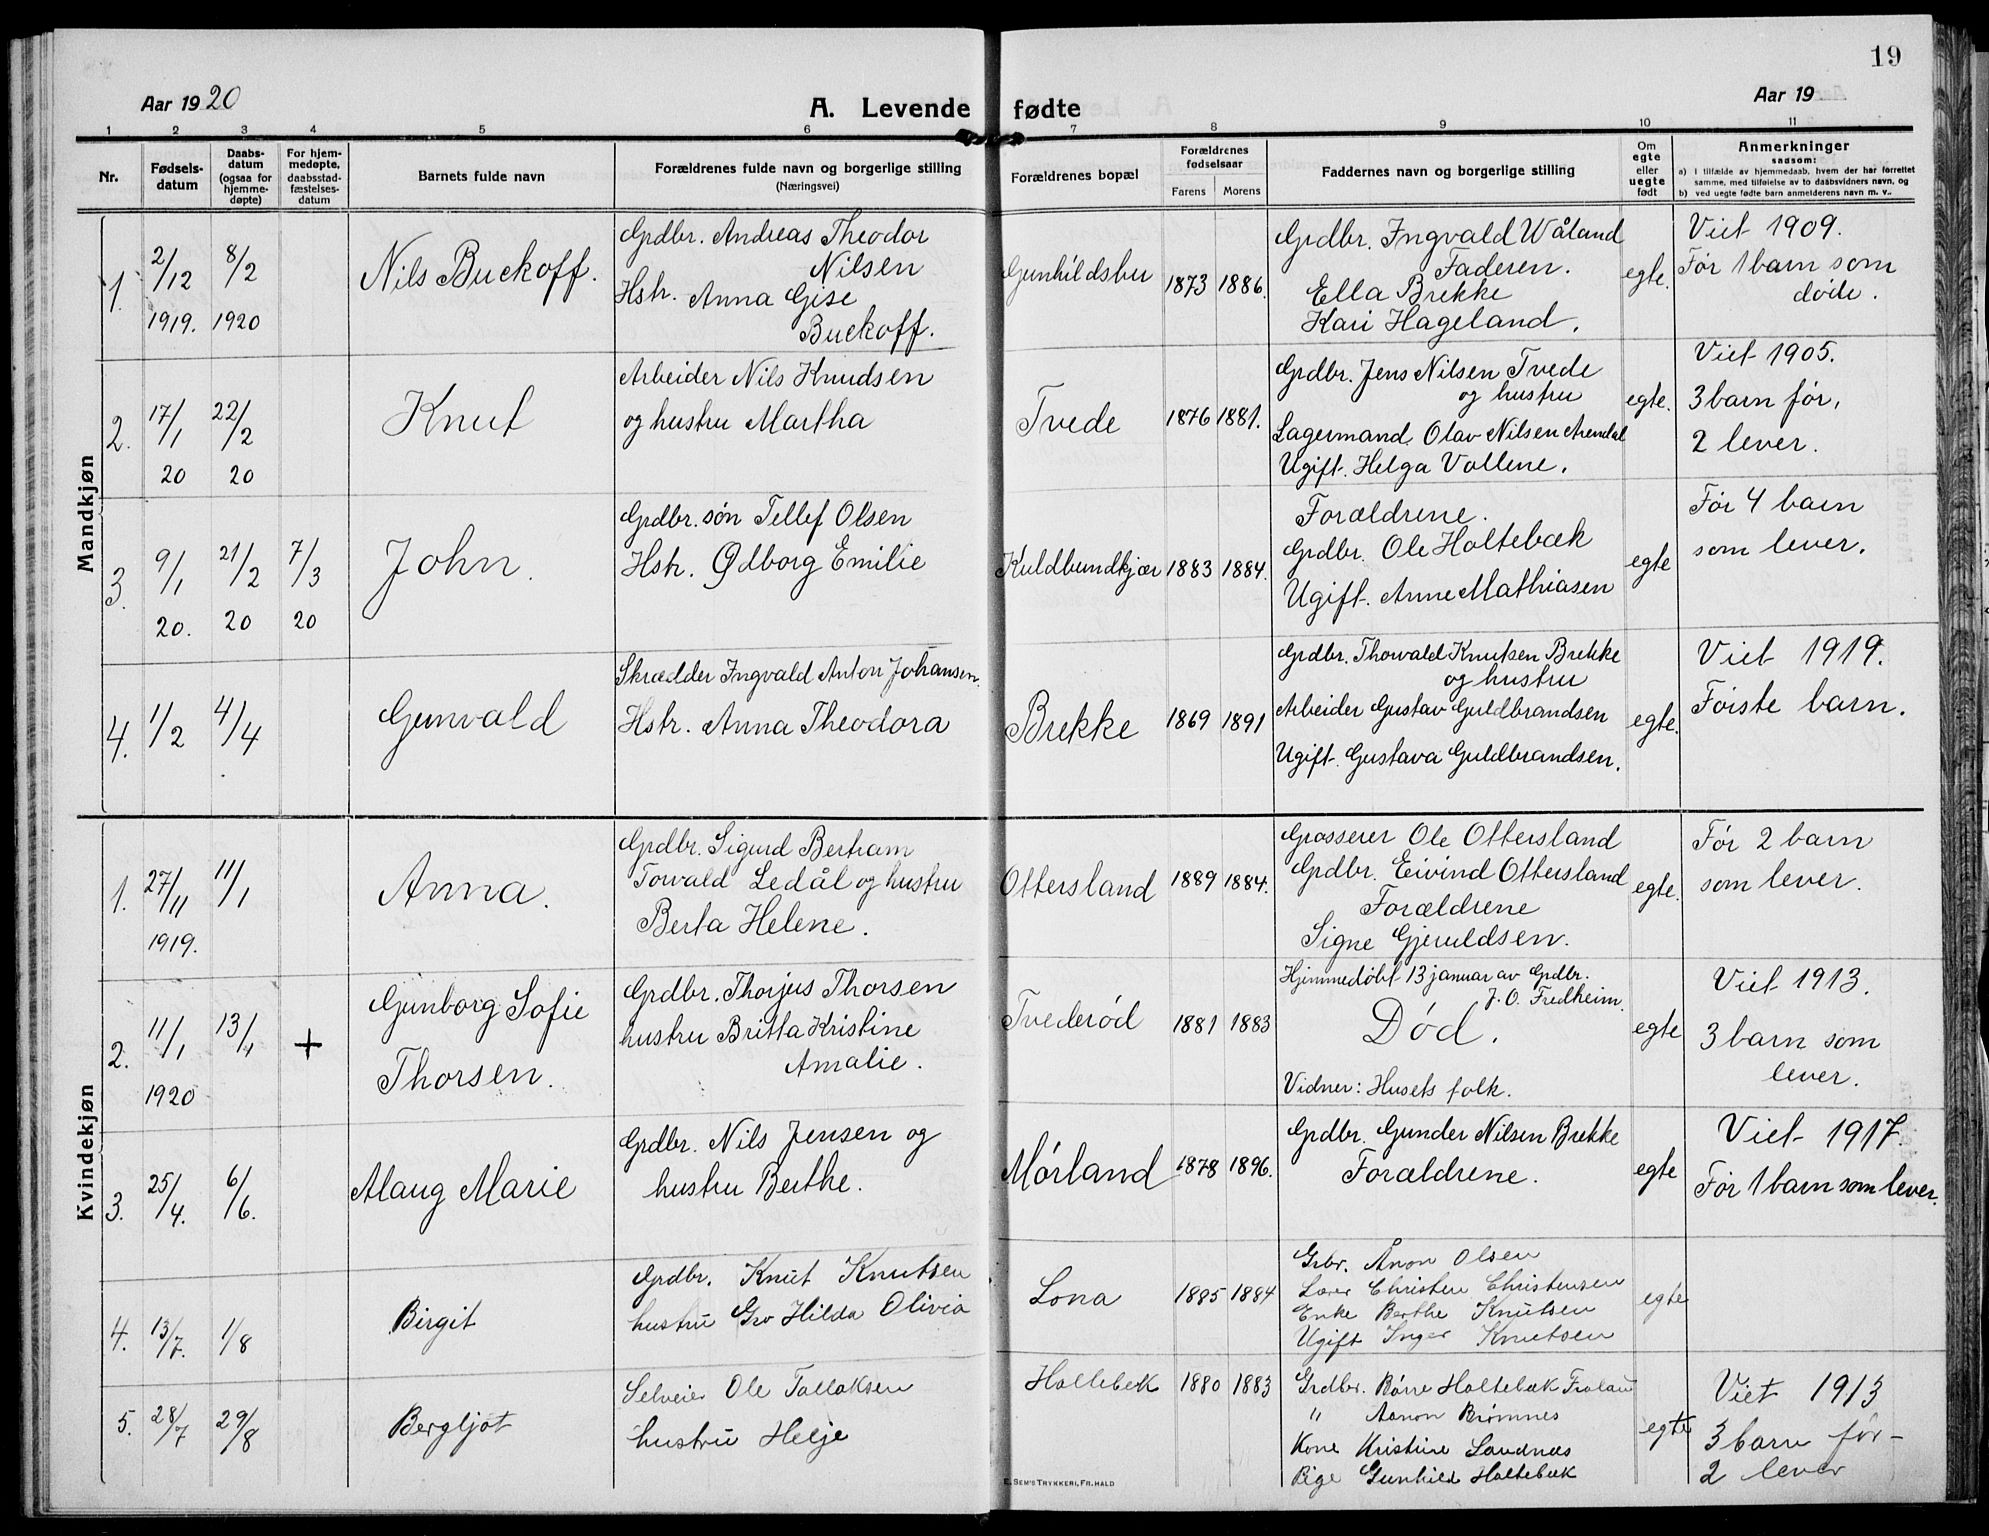 19
Aar 1920
A. Levende fødte
Aar 19
1 2 3 4 5 6 7 8 9 10 11
Nr.
Fødsels-
datum
Daabs-
datum
(ogsaa for
hjemme-
døpte)
For hjem-
medøpte,
daabsstad-
fæstelses-
datum
Barnets fulde navn
Forældrenes fulde navn og borgerlige stilling
(Næringsvei)
Forældrenes bopæl
Forældrenes
fødselsaar
Farens Morens
Faddernes navn og borgerlige stilling
Om
egte
eller
uegte
født
Anmerkninger
saasom:
a) i tilfælde av hjemmedaab, hvem der har forrettet
samme, med tilføielse av to daabsvidners navn, og
b) ved uegte fødte barn anmelderens navn m. v..
Mandkjøn
1.
2/12
1919.
8/2
1920
Nils Buckoff.
Grdbr. Andreas Theodor
Nilsen
Hstr. Anna Gise
Buckoff.
Gunhildsbu
1873 1886.
Grdbr. Ingvald Wåland
Faderen.
Ella Brekke
Kari Hageland.
egte.
Viet 1909.
Før 1 barn som
døde.
2.
17/1
20
22/2
20
Knut
Arbeider Nils Knudsen
og hustru Martha
Tvede
1876 1881.
Grdbr. Jens Nilsen Tvede
og hustru
Lagermand Olav Nilsen Arendal
Ugift. Helga Vollene.
egte.
Viet 1905.
3 barn før,
2 lever.
3.
9/1
20.
21/2
20
7/3
20
John.
Grdbr. søn Tellef Olsen
Hstr. Ødborg Emilie
Kuldbundkjær
1883 1884.
Forældrene.
Grdbr. Ole Holtebæk
Ugift. Anne Mathiasen
egte
Før 4 barn
som lever.
4.
1/2
4/4
Gunvald
Skrædder Ingvald Anton Johansen.
Hstr. Anna Theodora
Brekke
1869 1891
Grdbr. Thorvald Knutsen Brekke
og hustru
Arbeider Gustav Guldbrandsen
Ugift. Gustava Guldbrandsen.
egte.
Viet 1919.
Første barn.
Kvindekjøn
1.
27/11
1919.
11/1
Anna.
Grdbr. Sigurd Bertram
Torvald Ledål og hustru
Berta Helene.
Ottersland
1889 1884.
Grosserer Ole Ottersland
Grdbr. Eivind Ottersland
Forældrene
Signe Gjeruldsen.
egte.
Før 2 barn
som lever.
2.
11/1
1920
13/1
+
Gunborg Sofie
Thorsen.
Grdbr. Thorjus Thorsen
hustru Britta Kristine
Amalie.
Tvederød
1881 1883
Hjemmedøbt 13 januar av Grdbr.
J. O. Fredheim.
Død.
Vidner: Husets folk.
egte
Viet 1913.
3 barn som
lever.
3.
25/4.
6/6.
Alaug Marie
Grdbr. Nils Jensen og
hustru Berthe.
Mørland
1878 1896.
Grdbr. Gunder Nilsen Brekke
Forældrene.
egte
Viet 1917.
Før 1 barn som lever.
4.
13/7.
1/8
Birgit
Grdbr. Knut Knutsen
hustru Gro Hilda Olivia
Lona
1885 1884
Grbr. Ånon Olsen
Lærer Christen Christensen
Enke Berthe Knutsen
Ugift Inger Knutsen
egte
5.
28/7
29/8
Bergljot
Selveier Ole Tallaksen
hustru Helje
Holtebek
1880 1883
Grdbr. Børre Holtebæk Froland
" Aanon Brømnes
Kone Kristine Landnæs
Pige Gunhild Holtebæk
egte
Viet 1913
3 barn før-
2 lever
E. Sem's Trykkeri, Fr. hald